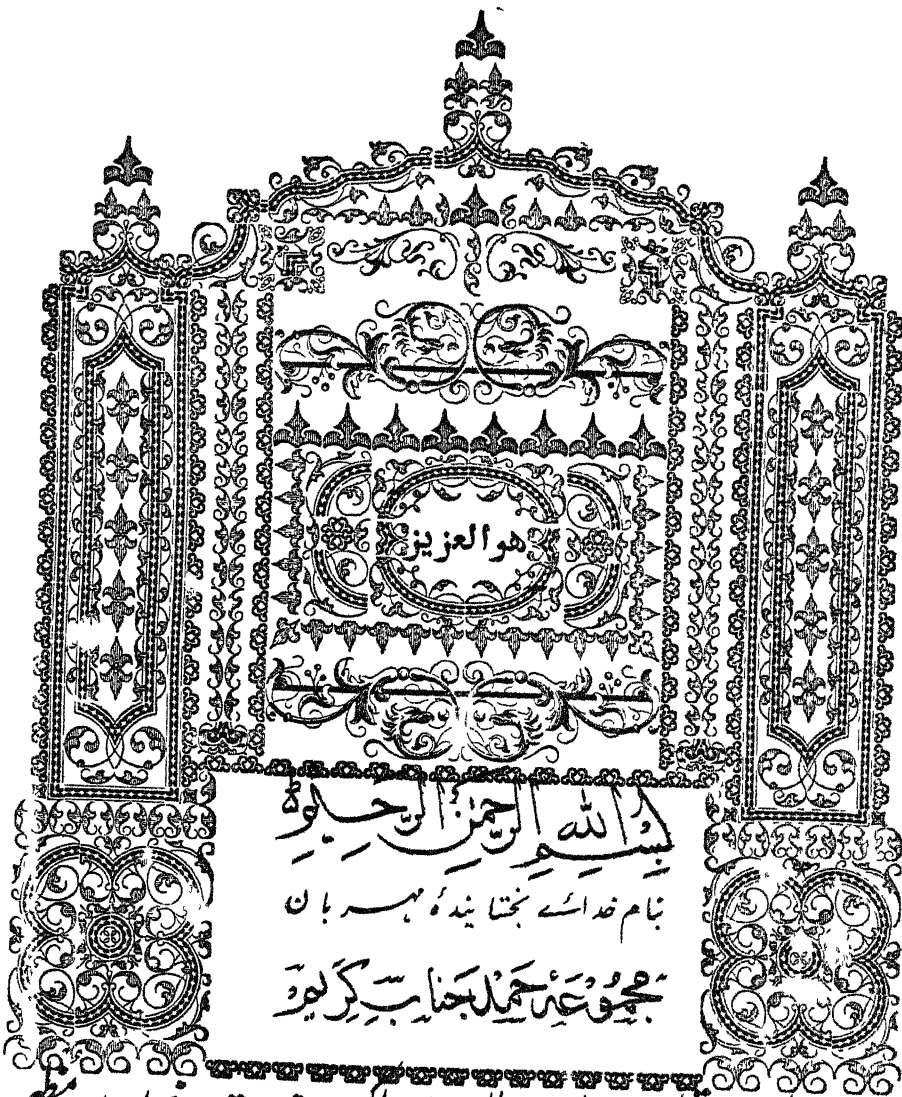 هو العزیز
بِسْمِ اللهِ الرَّحْمٰنِ الرَّحِيْمِ
بنام خدائے بخشایندۂ مہربان
مجموعۂ حمد جناب کریم